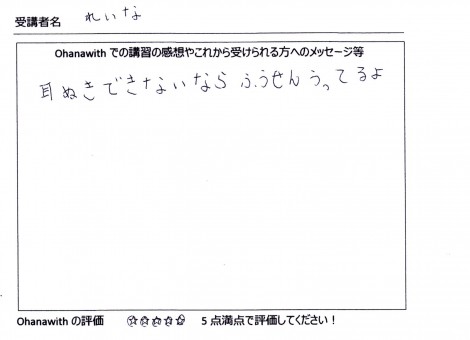 受講者名 れいな
Ohanawith での講習の感想やこれから受けられる方へのメッセージ等
耳ぬきできないなら ふうせんうってるよ
Ohanawith の評価 ☆☆☆☆☆ 5 点満点で評価してください！